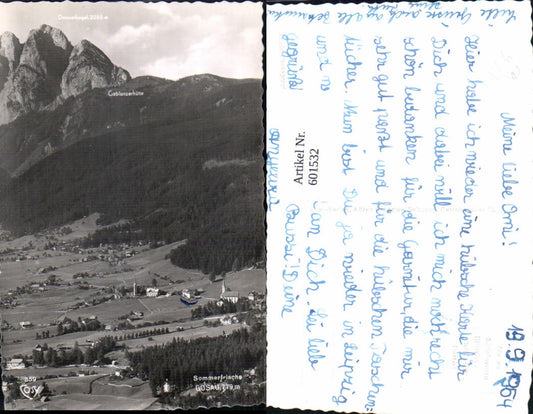 Donnerkogel, 2055 m
Gablonzerhütte
Sommerfrische
GOSAU, 779 m
899
Artikel Nr.
601532
19.9.1964
Meine liebe Omi!
Hier habe ich wieder eine hübsche Karte für
Dich und dabei will ich mich noch recht
schön bedanken für die Garnitur, die mir
sehr gut passt und für die hübschen Taschen=
tücher. Nun bist Du ja wieder in Leipzig
und
an Dich. Sei lieb
gegrüßt
Bussi! Deine